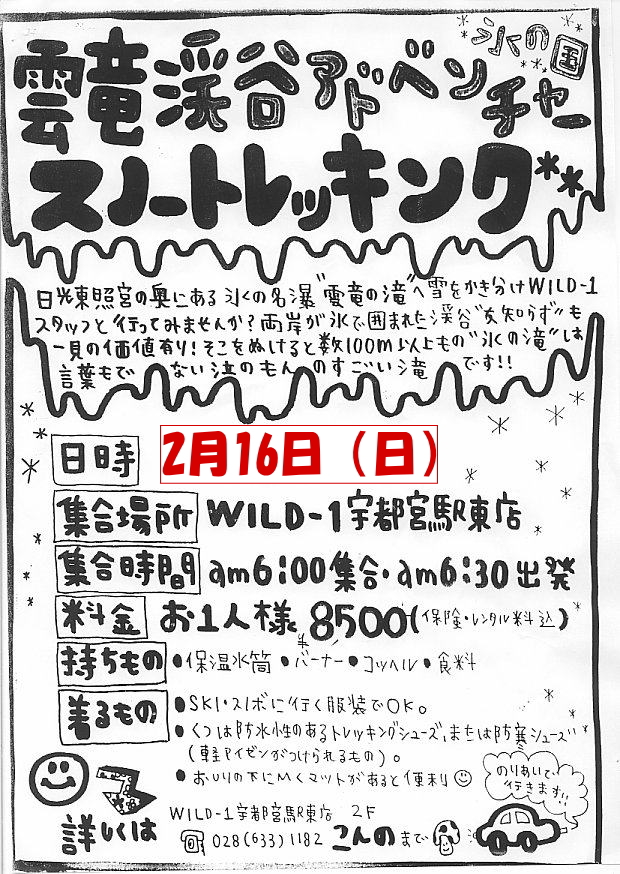 氷の国
雲竜渓谷アドベンチャー
スノートレッキング
日光東照宮の奥にある氷の名瀑"雲竜の滝"へ雪をかき分けWILD-1
スタッフと行ってみませんか?両岸が氷で囲まれた渓谷"友知らず"も
一見の価値有り!そこをぬけると数100m以上もの"氷の滝"は
言葉もで ない のもん のすごい滝 です!!
日時 2月16日(日)
集合場所 WILD-1宇都宮駅東店
集合時間 am6:00集合・am6:30出発
料金 お1人様 8500(保険・レンタル料込)
持ちもの ●保温水筒 ●バーナー ●コッヘル ●食料
着るもの ●SKI・スノボに行く服装でOK。
●くつは防水性のあるトレッキングシューズ、または防寒シューズ
(軽アイゼンがつけられるもの)。
●おしりの下にひくマットがあると便利
のりあいで
行きます!!
詳しくは WILD-1宇都宮駅東店 2F
028(633)1182 こんのまで